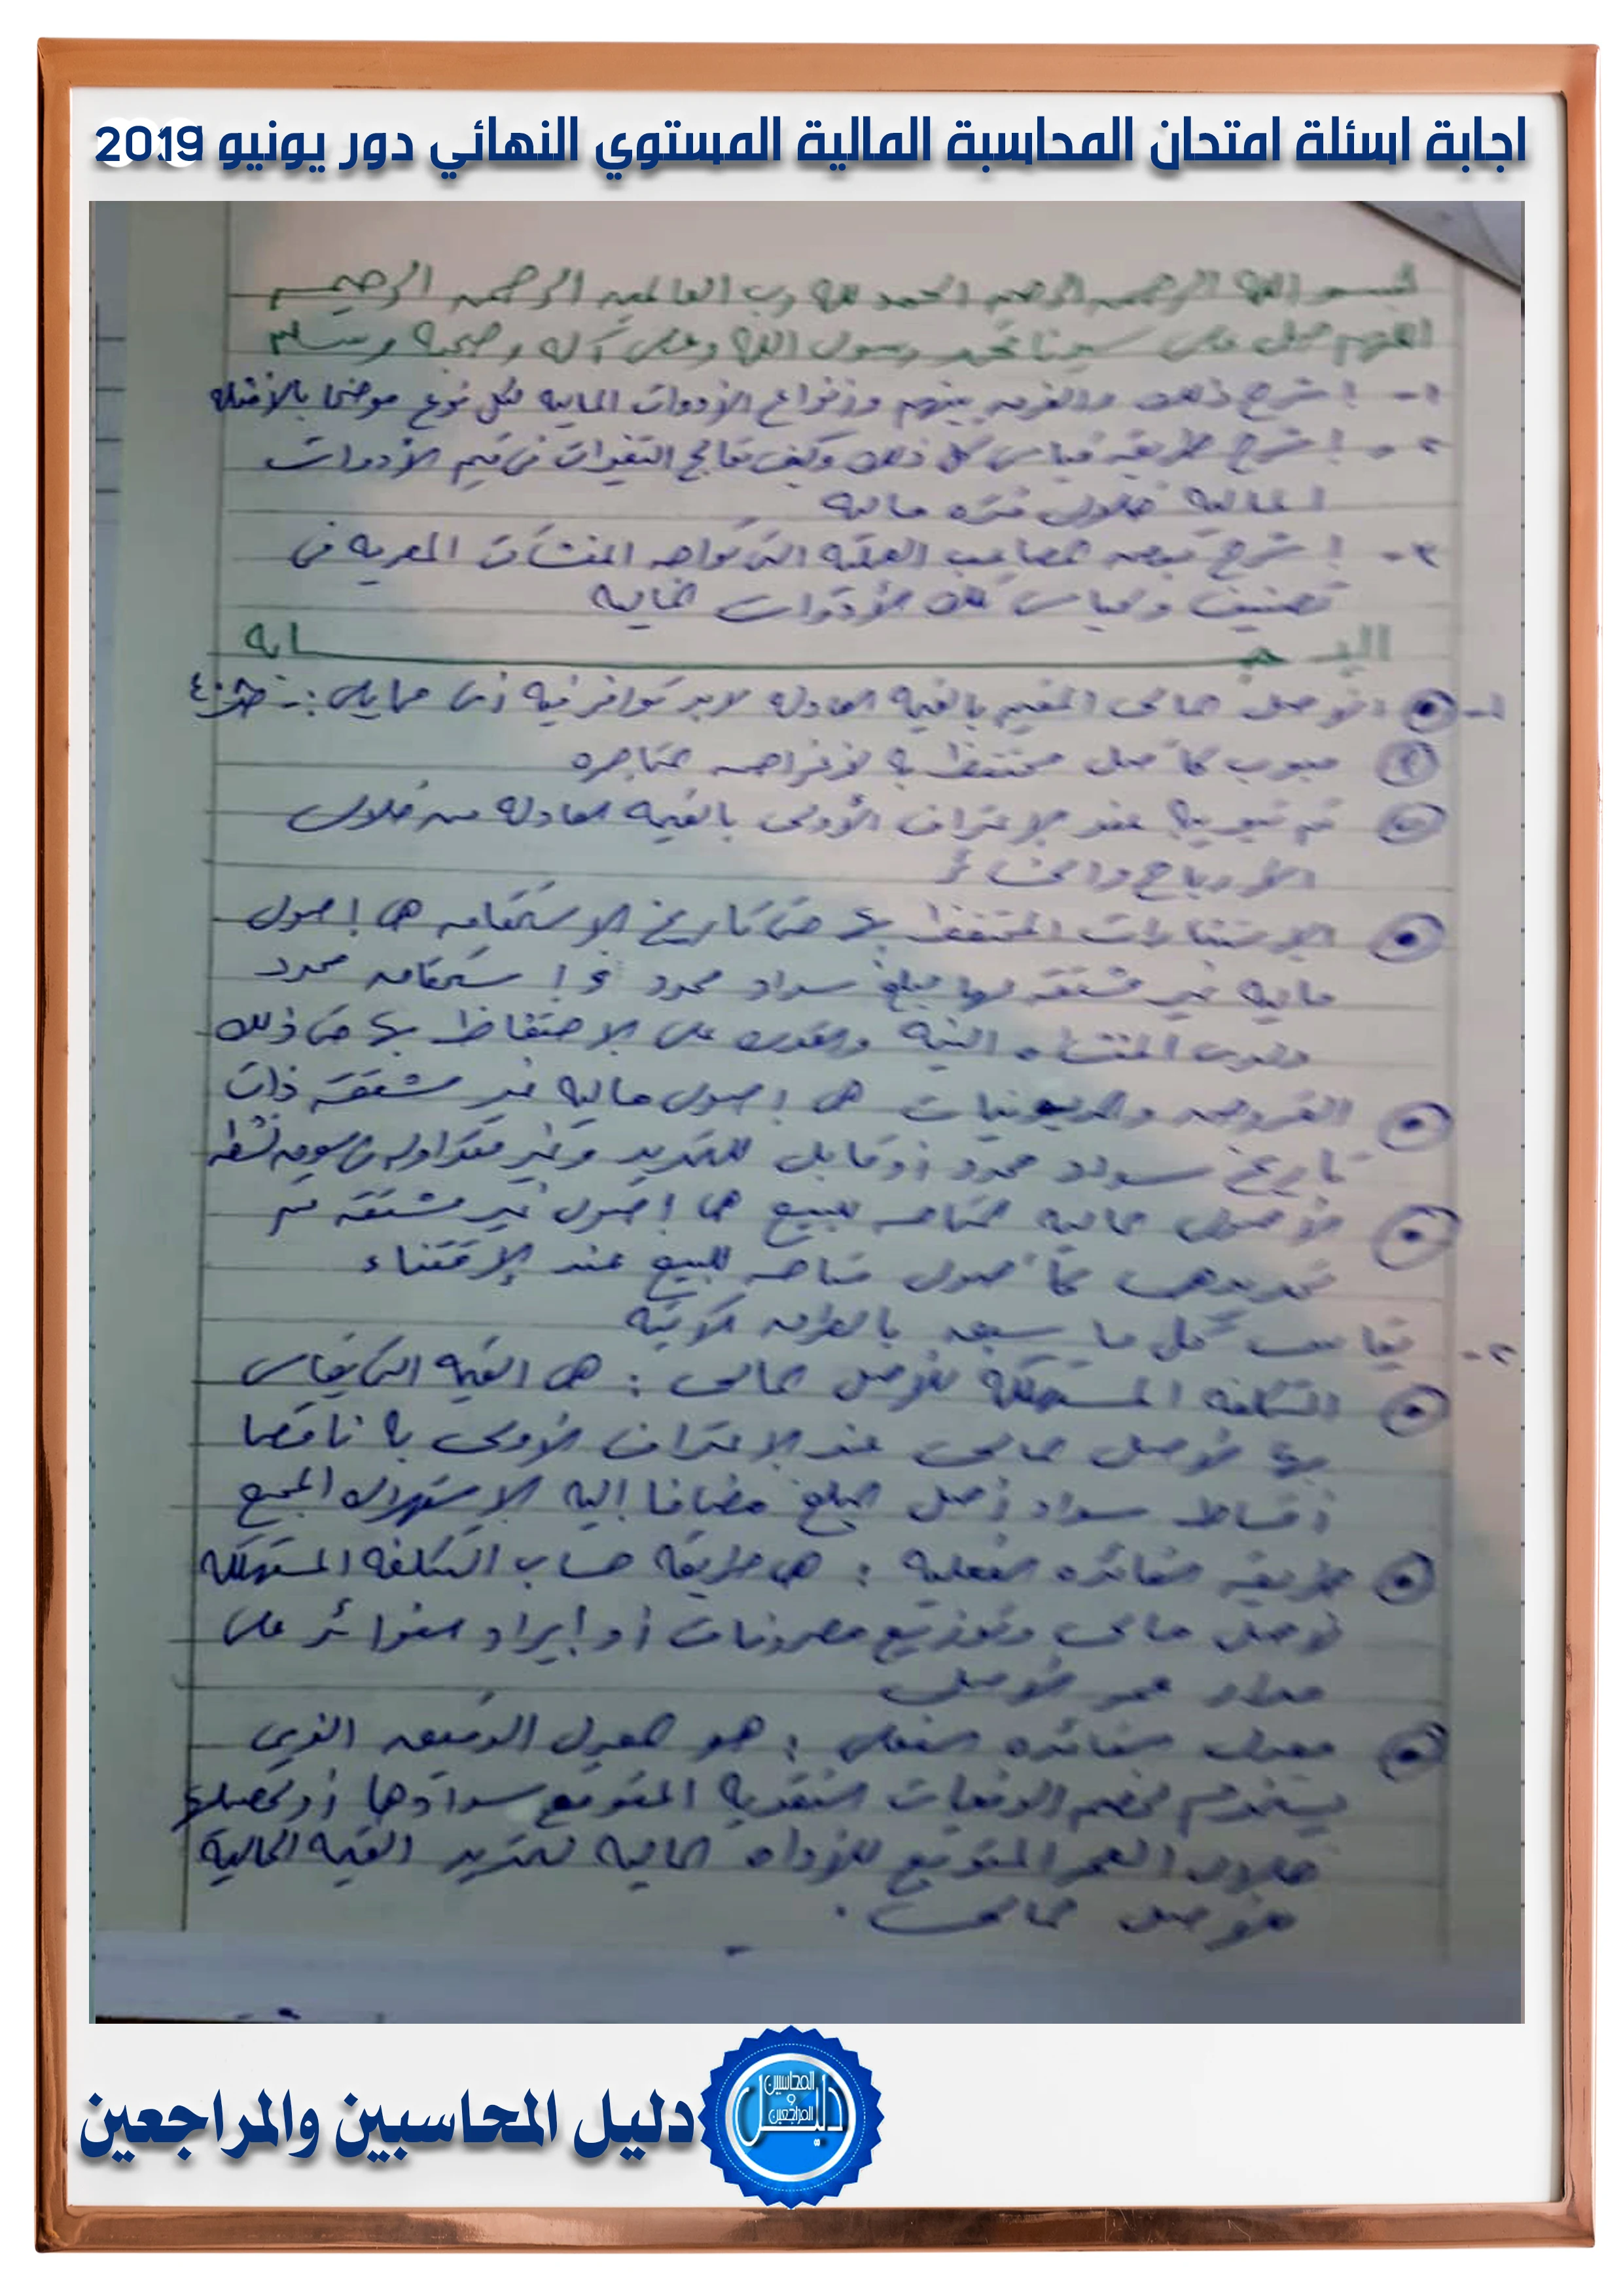 اجابة اسئلة امتحان المحاسبة المالية المستوي النهائي دور يونيو 2019
بسم الله الرحمن الرحيم الحمد لله رب العالمين الرحمن الرحيم
اللهم صل على سيدنا محمد رسول الله وعلى آله وصحبه وسلم
١- اشرح ذلك والفرق بينهم وأنواع الأدوات المالية لكل نوع موضحا بالأمثلة
٢- اشرح طريقة قياس كل ذلك وكيف تعالج التغيرات في قيم الأدوات
المالية خلال فترة مالية
٣- اشرح بعض المصاعب العملية التي تواجه المنشآت المصرية في
تصنيف وقياس تلك الأدوات المالية
الإجابه
١- الأصل المالي المقيم بالقيمة العادلة لابد توافر فيه أي مما يلي :-
مبوب كأصل محتفظ به لأغراض المتاجرة
تم تبويبه عند الاعتراف الأولي بالقيمة العادلة من خلال
الأرباح والخسائر
الاستثمارات المحتفظ بها حتى تاريخ الاستحقاق هي أصول
مالية غير مشتقة لها مبلغ سداد محدد واستحقاق محدد
ولدى المنشأة النية والقدرة على الاحتفاظ بها حتى ذلك
القروض والمديونيات هي أصول مالية غير مشتقة ذات
تاريخ سداد محدد أو قابل للتحديد وغير متداولة في سوق نشطة
الأصول المالية المتاحة للبيع هي أصول غير مشتقة تم
تحديدها كأصول متاحة للبيع عند الاقتناء
٢- يقاس كل ما سبق بالطرق الآتية
التكلفة المستهلكة للأصل المالي : هي القيمة التي يقاس
بها الأصل المالي عند الاعتراف الأولي به ناقصا
أقساط سداد أصل المبلغ مضافا إليه الاستهلاك المجمع
طريقة الفائدة الفعلية : هي طريقة حساب التكلفة المستهلكة
لأصل مالي وتوزيع مصروفات أو إيراد الفوائد على
مدار عمر الأصل
معدل الفائدة الفعلي : هو المعدل الدقيق الذي
يستخدم لخصم الدفعات النقدية المتوقع سدادها أو تحصيلها
خلال العمر المتوقع للأداة المالية لتحديد القيمة الحالية
لأصل مالي .
دليل المحاسبين والمراجعين
دليل
المحاسبين
و
المراجعين